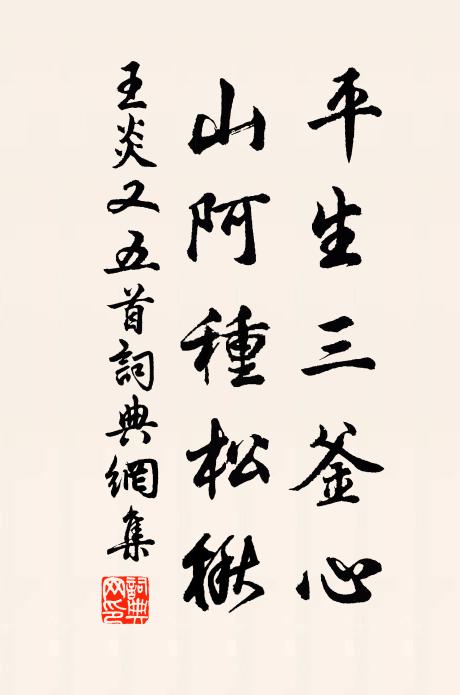 平生三釜心
山阿種松楸
王炎又五首詞典網集
詞典網印